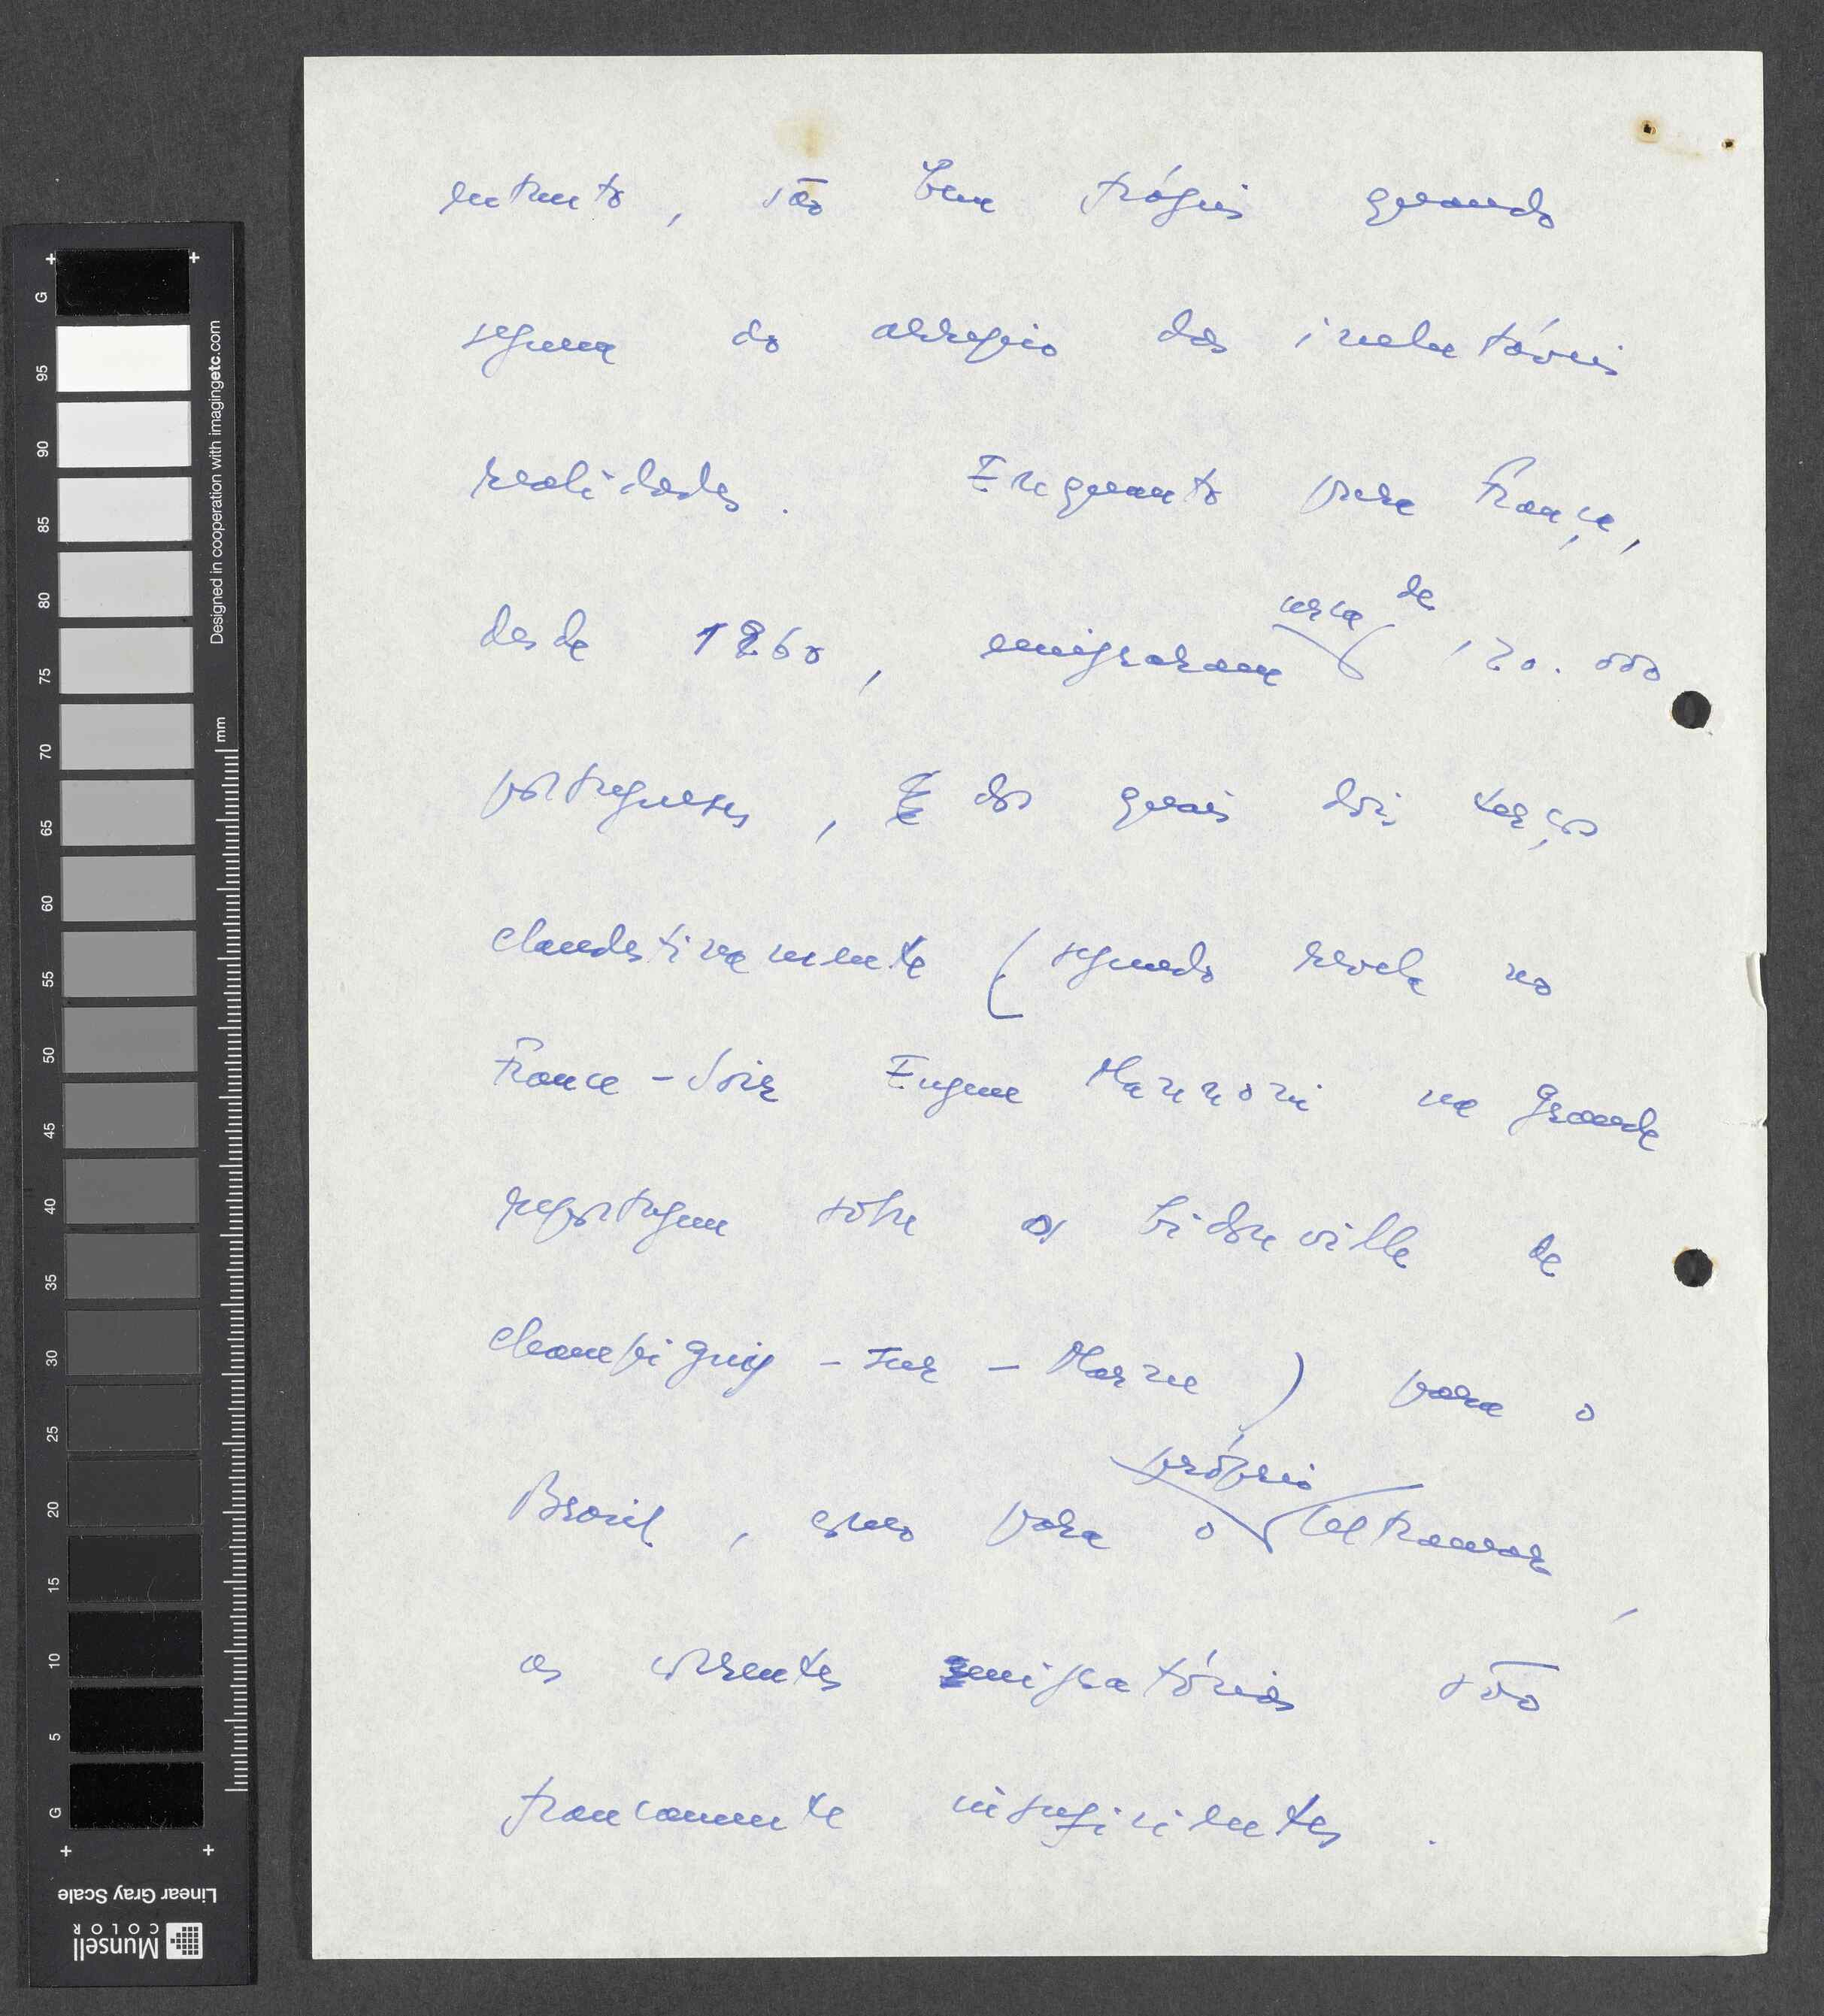 entanto, são bem frágeis quando
seguem ao arrepio das inelutáveis
realidades. Enquanto para França,
desde 1960, emigraram cerca de 120.000
portugueses, dos quais dois terços
clandestinamente (segundo revela no
France-Soir Eugene Mannoni na grande
reportagem sôbre os bidonville de
Champigny-sur-Marne) para o
Brasil, como para o próprio Ultramar,
as correntes emigratórias são
francamente insuficientes.
G 95 90 85 80 75 70 65 60 55 50 45 40 35 30 25 20 15 10 5 G
Designed in cooperation with imagingetc.com
mm
Linear Gray Scale
Munsell COLOR